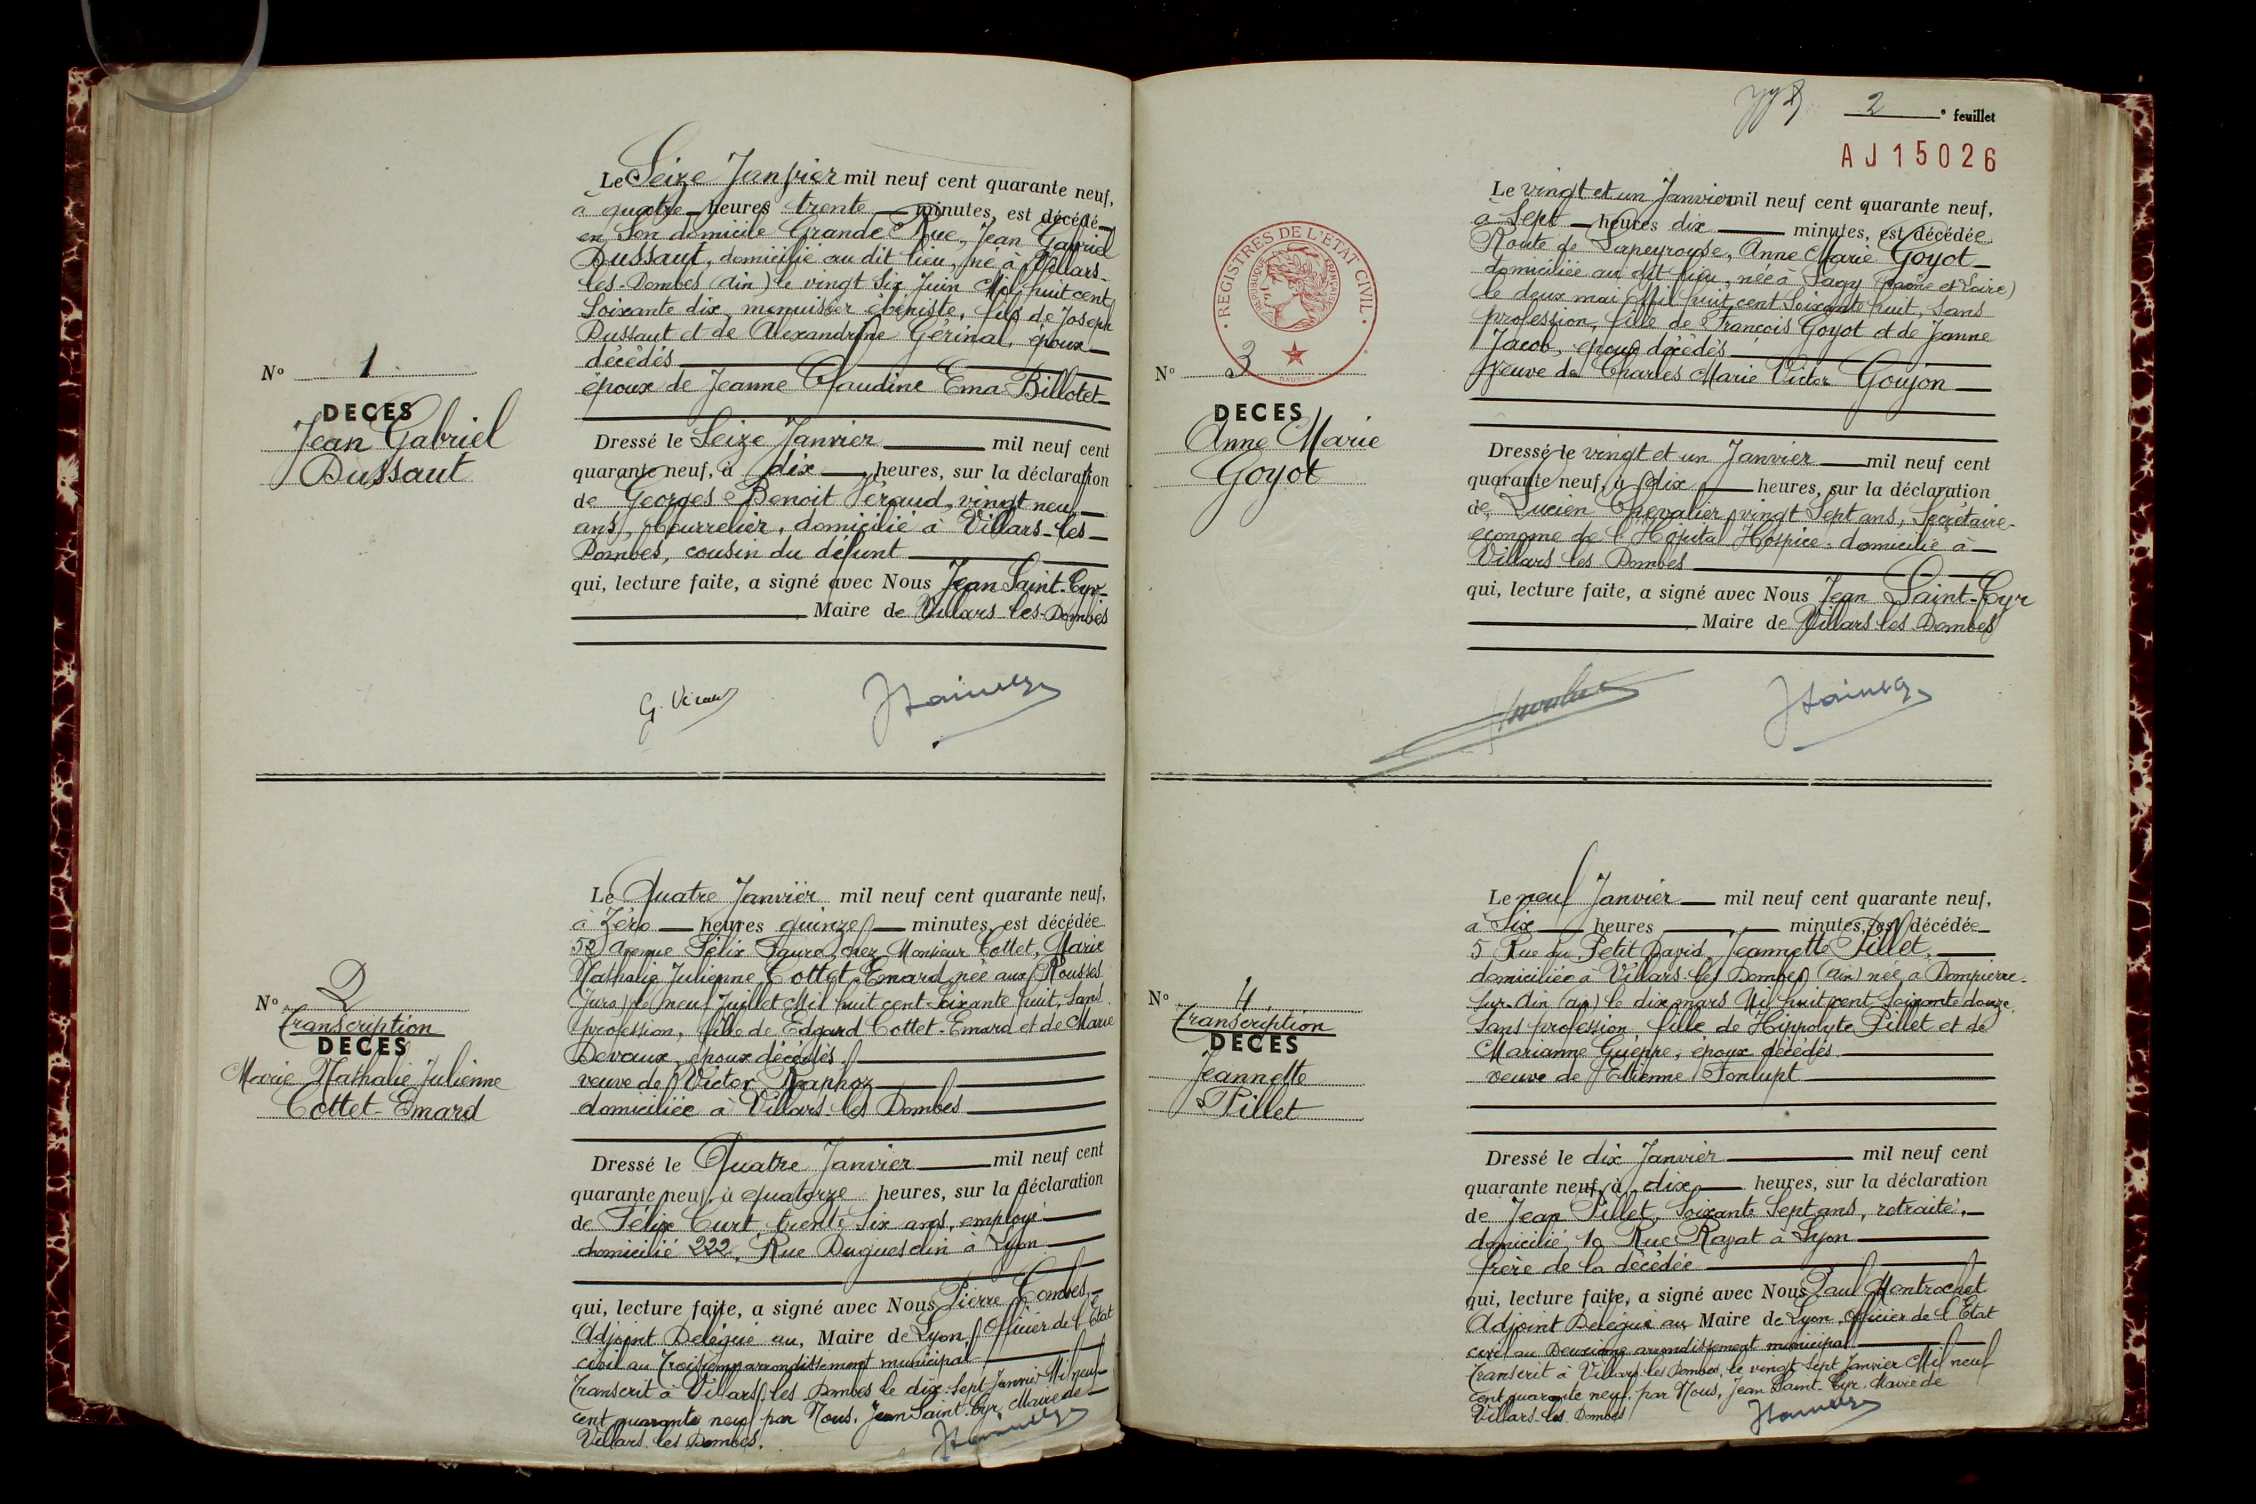 Le Seize Janvier mil neuf cent quarante neuf,
à quatre heures trente minutes, est décédé
en son domicile Grande Rue, Jean Gabriel
Dussaut, domicilié au dit lieu, né à Villars-
les-Dombes (Ain) le vingt six Juin Mil huit cent
soixante dix, menuisier ébéniste, fils de Joseph
Dussaut et de Alexandrine Gérinal, époux
décédés
époux de Jeanne Claudine Ema Billotet
Nº 1
DECES
Jean Gabriel
Dussaut
Dressé le Seize Janvier mil neuf cent
quarante neuf, à dix heures, sur la déclaration
de Georges Benoit Véraud, vingt neuf
ans, bourrelier, domicilié à Villars-les-
Dombes, cousin du défunt
qui, lecture faite, a signé avec Nous Jean Saint-Cyr
Maire de Villars-les-Dombes
Le Quatre Janvier mil neuf cent quarante neuf,
à Zéro heures quinze minutes, est décédée
52 Avenue Félix Faure, chez Monsieur Cottet, Marie
Nathalie Julienne Cottet-Emard, née aux Rousses
(Jura) le neuf Juillet Mil huit cent soixante huit, sans
profession, fille de Edgard Cottet-Emard et de Marie
Devaux, époux décédés
veuve de Victor Raphoz
domiciliée à Villars les Dombes
Nº 2
Transcription
DECES
Marie Nathalie Julienne
Cottet-Emard
Dressé le Quatre Janvier mil neuf cent
quarante neuf, à quatorze heures, sur la déclaration
de Félix Curt, trente six ans, employé
domicilié 222, Rue Duguesclin à Lyon
qui, lecture faite, a signé avec Nous Pierre Combes,
Adjoint Délégué au, Maire de Lyon, Officier de l'Etat
civil au Troisième arrondissement municipal
Transcrit à Villars les Dombes le dix-sept Janvier Mil neuf
cent quarante neuf par Nous, Jean Saint-Cyr Maire de
Villars les Dombes.
2 e feuillet
AJ15026
Le vingt et un Janvier mil neuf cent quarante neuf,
à Sept heures dix minutes, est décédée
Route de Lapeyrouse, Anne Marie Goyot
domiciliée au dit lieu, née à Sagy (Saône et Loire)
le deux mai Mil huit cent soixante huit, sans
profession, fille de François Goyot et de Jeanne
Jacob, époux décédés
Veuve de Charles Marie Victor Goujon
REGISTRES DE L'ÉTAT CIVIL
RÉPUBLIQUE FRANÇAISE
Nº 3
DECES
Anne Marie
Goyot
Dressé le vingt et un Janvier mil neuf cent
quarante neuf, à dix heures, sur la déclaration
de, Lucien Chevalier, vingt sept ans, Secrétaire-
econome de l'Hôpital Hospice-domicilié à
Villars les Dombes
qui, lecture faite, a signé avec Nous Jean Saint-Cyr
Maire de Villars les Dombes
Le neuf Janvier mil neuf cent quarante neuf,
à Six heures minutes, est décédée
5 Rue du Petit David, Jeannette Pillet,
domiciliée à Villars les Dombes (ain) née à Dompierre-
sur-Ain (ain) le dix mars Mil huit cent soixante douze,
Sans profession, fille de Hippolyte Pillet et de
Marianne Guèpre, époux décédés
veuve de Etienne Fonlupt
Nº 4
Transcription
DECES
Jeannette
Pillet
Dressé le dix Janvier mil neuf cent
quarante neuf, à dix heures, sur la déclaration
de Jean Pillet, Soixante Sept ans, retraité,
domicilié, 10 Rue Rayat à Lyon
frère de la décédée
qui, lecture faite, a signé avec Nous Paul Montrochet
Adjoint Délégué au Maire de Lyon, Officier de l'Etat
civil au Deuxième arrondissement municipal
Transcrit à Villars les Dombes, le vingt sept Janvier Mil neuf
cent quarante neuf, par Nous, Jean Saint-Cyr, Maire de
Villars-les-Dombes